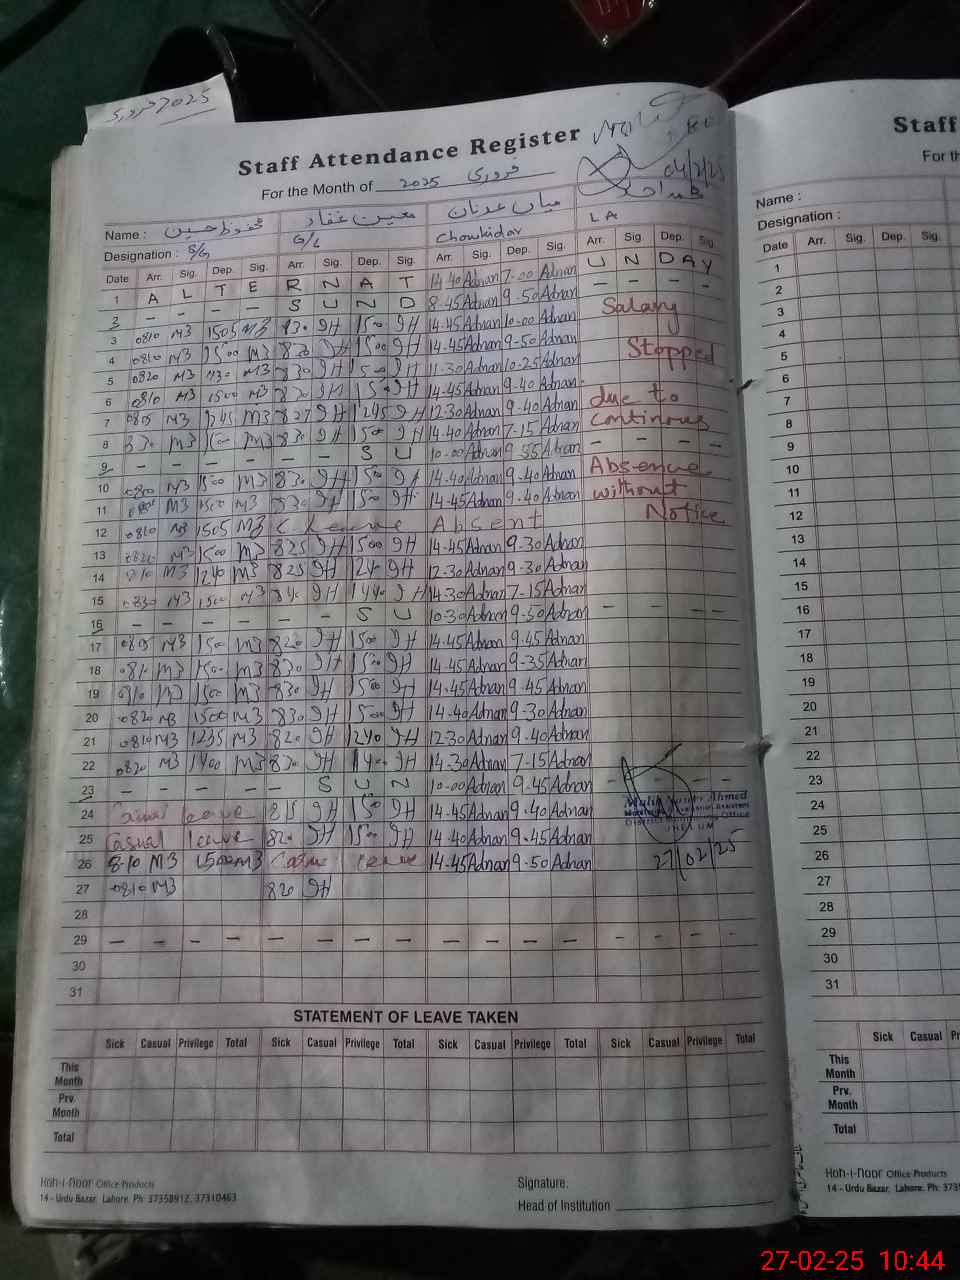 فروری 2025
Staff Attendance Register
For the Month of 2025 فروری
04/2/25
Name : محفوظ حسین معین غفار میاں عدنان
Designation : S/G G/L Chowkidar LA
Date Arr. Sig. Dep. Sig. Arr. Sig. Dep. Sig. Arr. Sig. Dep. Sig. Arr. Sig. Dep. Sig.
1 A L T E R N A T 14.40 Adnan 7-00 Adnan U N D A Y
2 - - - - S U N D 8-45 Adnan 9-50 Adnan - - - -
3 0810 M3 1505 M3 830 IH 1500 IH 14-45 Adnan 10-00 Adnan Salary
4 0810 M3 1500 M3 830 IH 1500 IH 14-45 Adnan 9-50 Adnan
5 0820 M3 1130 M3 830 IH 1500 IH 11-30 Adnan 10-25 Adnan Stopped
6 0810 M3 1500 M3 830 IH 1500 IH 14-45 Adnan 9-40 Adnan
7 0805 M3 1245 M3 827 IH 1245 IH 12-30 Adnan 9-40 Adnan due to
8 830 M3 1500 M3 830 IH 1500 IH 14-40 Adnan 7-15 Adnan continous
9 - - - - - - S U 10-00 Adnan 9-55 Adnan - - - -
10 0800 M3 1500 M3 830 IH 1500 IH 14-40 Adnan 9-40 Adnan Absence
11 M3 1500 M3 830 IH 1500 IH 14-45 Adnan 9-40 Adnan without
12 0810 M3 1505 M3 C Leave Absent Notice
13 0820 M3 1500 M3 825 IH 1500 IH 14-45 Adnan 9-30 Adnan
14 0810 M3 1240 M3 825 IH 1240 IH 12-30 Adnan 9-30 Adnan
15 0830 M3 1500 M3 840 IH 1440 IH 14-30 Adnan 7-15 Adnan
16 - - - - - - S U 10-30 Adnan 9-50 Adnan - - - -
17 0805 M3 1500 M3 820 IH 1500 IH 14-45 Adnan 9-45 Adnan
18 0810 M3 1500 M3 830 IH 1500 IH 14-45 Adnan 9-35 Adnan
19 0810 M3 1500 M3 830 IH 1500 IH 14-45 Adnan 9-45 Adnan
20 0820 M3 1500 M3 830 IH 1500 IH 14-40 Adnan 9-30 Adnan
21 0810 M3 1235 M3 820 IH 1240 IH 12-30 Adnan 9-40 Adnan
22 0820 M3 1400 M3 820 IH 1400 IH 14-30 Adnan 7-15 Adnan
23 - - - - - S U N 10-00 Adnan 9-45 Adnan - - - -
24 Casual leave 815 IH 1500 IH 14-45 Adnan 9-40 Adnan
25 Casual leave 820 IH 1500 IH 14-40 Adnan 9-45 Adnan
26 8-10 M3 1500 M3 Casual leave 14-45 Adnan 9-50 Adnan
27 0810 M3 820 IH
Ahmed
District Office
JHELUM
27/02/25
28
29 - - - - - - - - - - - - - - - -
30
31
STATEMENT OF LEAVE TAKEN
Sick Casual Privilege Total Sick Casual Privilege Total Sick Casual Privilege Total Sick Casual Privilege Total
This Month
Prv. Month
Total
Koh-i-Noor Office Products
14 - Urdu Bazar, Lahore. Ph: 37358912, 37310463
Signature.
Head of Institution
Staff
For th
Name :
Designation :
Date Arr. Sig. Dep. Sig.
1
2
3
4
5
6
7
8
9
10
11
12
13
14
15
16
17
18
19
20
21
22
23
24
25
26
27
28
29
30
31
Sick Casual Pr
This Month
Prv. Month
Total
Koh-i-Noor Office Products
14 - Urdu Bazar, Lahore. Ph: 3735
27-02-25 10:44